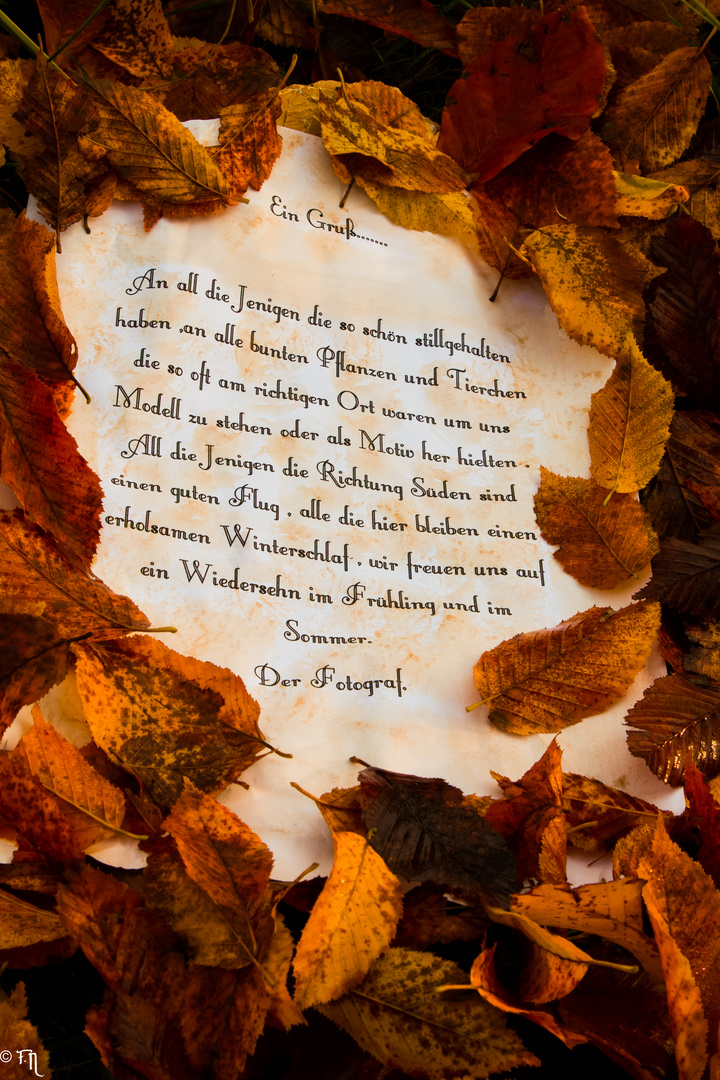 Ein Gruß.......
An all die Jenigen die so schön stillgehalten
haben ,an alle bunten Pflanzen und Tierchen
die so oft am richtigen Ort waren um uns
Modell zu stehen oder als Motiv her hielten .
All die Jenigen die Richtung Süden sind
einen guten Flug , alle die hier bleiben einen
erholsamen Winterschlaf , wir freuen uns auf
ein Wiedersehn im Frühling und im
Sommer.
Der Fotograf.
© F.N